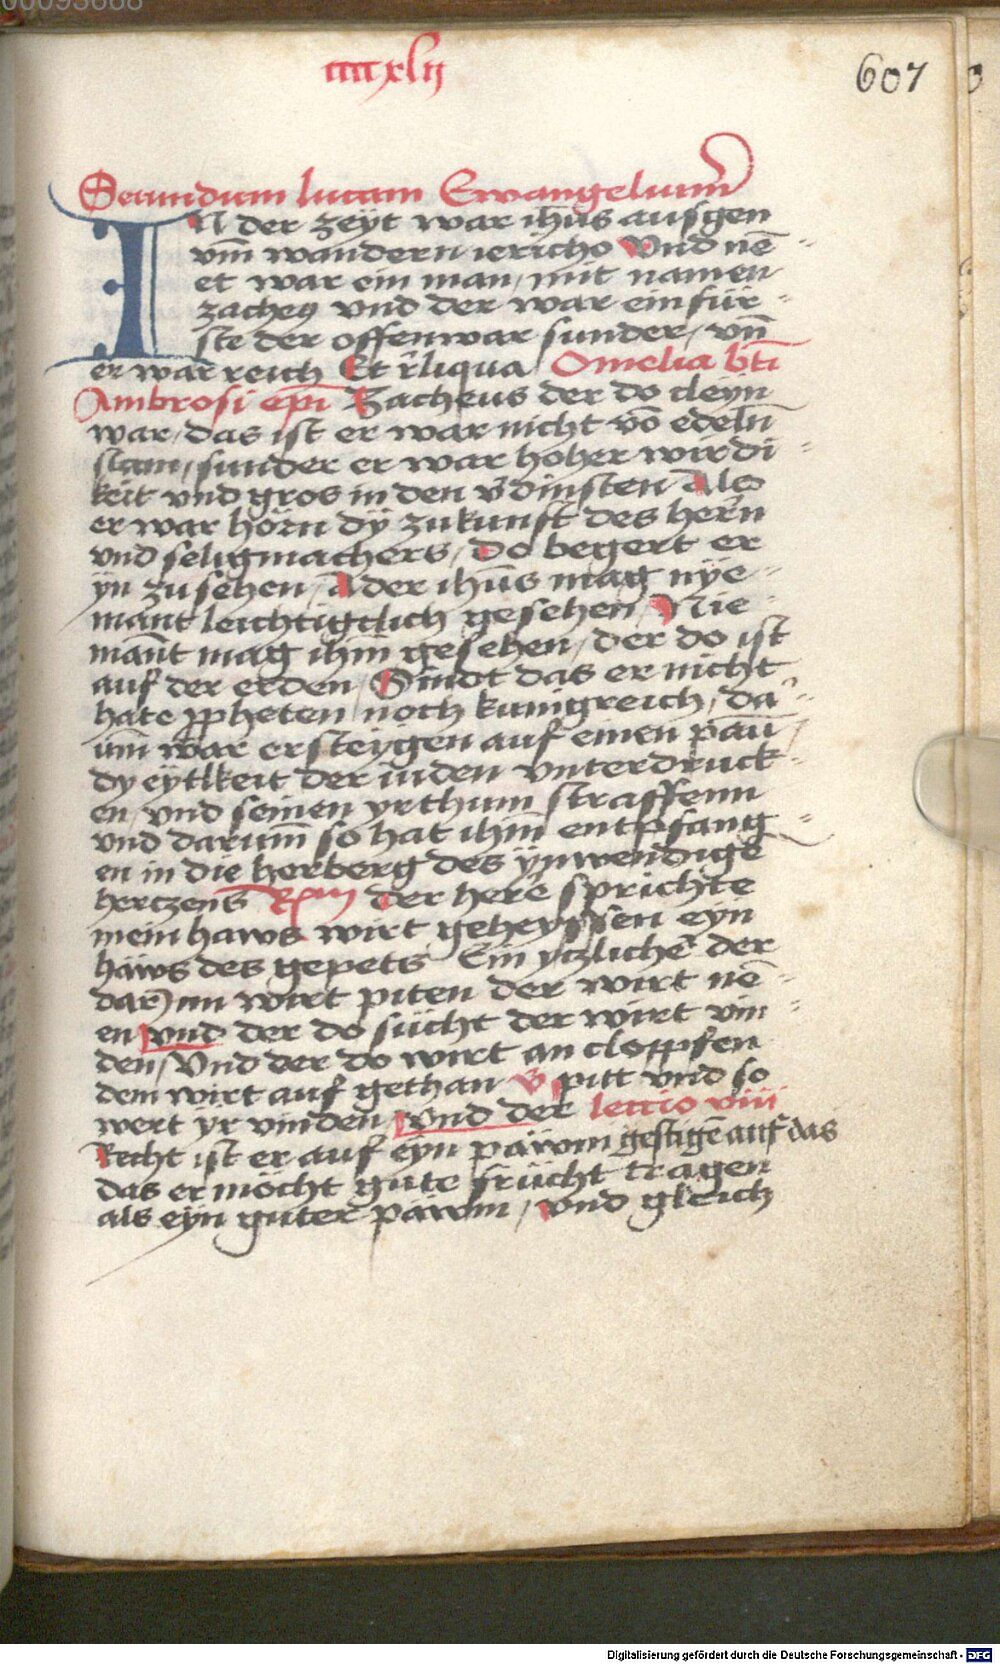 00093668
ccccxlij
607
Secundum lucam Ewangelium
IN der zeÿt war ihūs ausgen
vm̄ wandern iericho Vnd nē
et war ein man mit namen
zacheꝯ vnd der war ein für
ste der offenwar sunder, vn̄
er war reich Et r̄liqua Omelia bt̄i
Ambrosi ep̄i Zacheus der do cleyn
war, das ist er war nicht vō edeln̄
stam, sunder er war hoher wirdi
keit vnd gros in den v̄dinsten Als
er war hörn dÿ zukunft des her̄n
vnd seligmachers, Do begert er
ÿn zu sehen, Ader ihūs mag nÿe
mant leichtigclich gesehen, Nie
man̄t mag ihm̄ gesehen, der do ist
auf der erden, Sindt das er nicht
hate ꝓpheten noch kunigreich, da
um̄ war er steÿgen auf einen paū
dy eÿtlkeit der iuden vnterdruck
en, vnd seinen yrthum straffenn
vnd darum̄ so hat ihm̄ entpfang
en in die herberg des ÿnwendigē
hertzens Rm̄ der herē sprichte
mein haws wirt geheyssen eyn
haws des gepets Ein yczlicher der
darynn wirt piten der wirt nē
en vnd der do sücht der wirt vin
den, Vnd der do wirt an cloppfen
dem wirt auf gethan V̄ pitt vnd so
wert ÿr vinden Vnd der lectio viii
Recht ist er auf eyn pawm gestigē auf das
das er möcht gute frücht tragen
als eyn guter pawm, vnd gleich
Digitalisierung gefördert durch die Deutsche Forschungsgemeinschaft - DFG